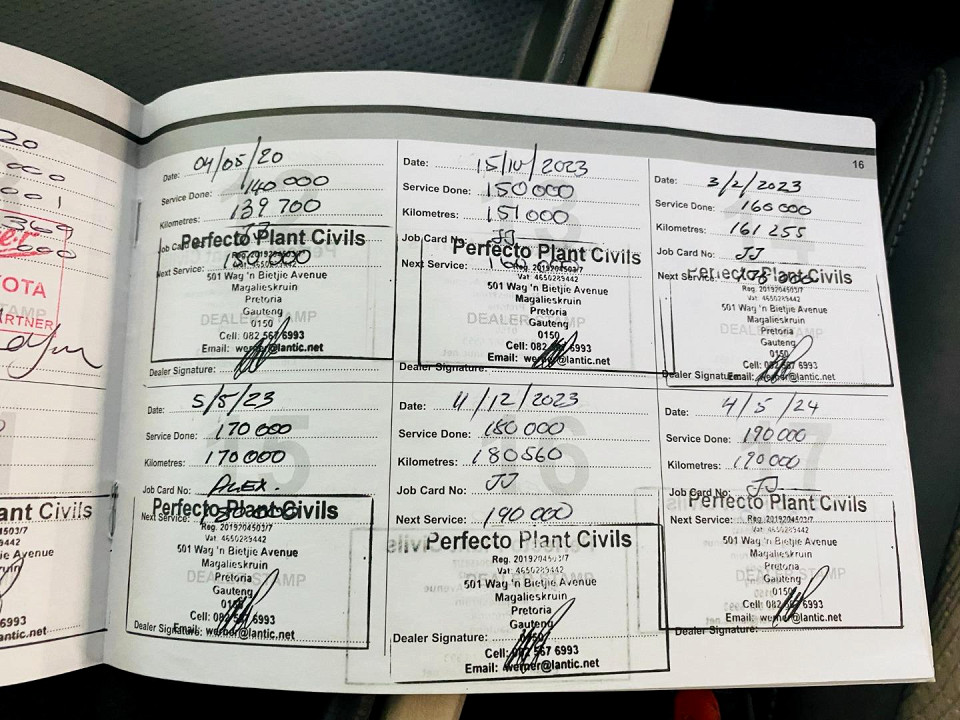 20
000
001
OTA
ARTNER
ant Civils
4503/7
9442
ie Avenue
6993
antic.net
16
Date: 04/05/20
Service Done: 140 000
Kilometres: 139 700
Job Card No:
Perfecto Plant Civils
Next Service: 150 000
Reg. 2019204503/7
Vat: 4650289442
501 Wag 'n Bietjie Avenue
Magalieskruin
Pretoria
Gauteng
DEALER STAMP
0150
Cell: 082 567 6993
Email: werner@lantic.net
Dealer Signature:
Date: 15/10/2023
Service Done: 150000
Kilometres: 151 000
Job Card No: JJ
Perfecto Plant Civils
Next Service:
Reg. 2019204503/7
Vat: 4650289442
501 Wag 'n Bietjie Avenue
Magalieskruin
Pretoria
Gauteng
DEALER STAMP
0150
Cell: 082 567 6993
Email: werner@lantic.net
Dealer Signature:
Date: 3/2/2023
Service Done: 160 000
Kilometres: 161 255
Job Card No: JJ
Perfecto Plant Civils
Next Service:
Reg. 2019204503/7
Vat: 4650289442
501 Wag 'n Bietjie Avenue
Magalieskruin
Pretoria
Gauteng
DEALER STAMP
0150
Cell: 082 567 6993
Dealer Signature:
Email: werner@lantic.net
Date: 5/5/23
Service Done: 170 000
Kilometres: 170 000
Job Card No: ALEX.
Perfecto Plant Civils
Next Service: 180 000
Reg. 2019204503/7
Vat: 4650289442
501 Wag 'n Bietjie Avenue
Magalieskruin
Pretoria
DEALER STAMP
Gauteng
0150
Cell: 082 567 6993
Dealer Signature:
Email: werner@lantic.net
16
Date: 11/12/2023
Service Done: 180 000
Kilometres: 180560
Job Card No: JJ
Next Service: 190 000
Perfecto Plant Civils
Reg. 2019204503/7
Vat: 4650289442
501 Wag 'n Bietjie Avenue
Magalieskruin
Pretoria
Gauteng
Dealer Signature:
0150
Cell: 082 567 6993
Email: werner@lantic.net
17
Date: 4/5/24
Service Done: 190 000
Kilometres: 190 000
Job Card No: JJ
Perfecto Plant Civils
Next Service:
Reg. 2019204503/7
Vat: 4650289442
501 Wag 'n Bietjie Avenue
Magalieskruin
Pretoria
DEALER STAMP
Gauteng
0150
Cell: 082 567 6993
Email: werner@lantic.net
Dealer Signature: